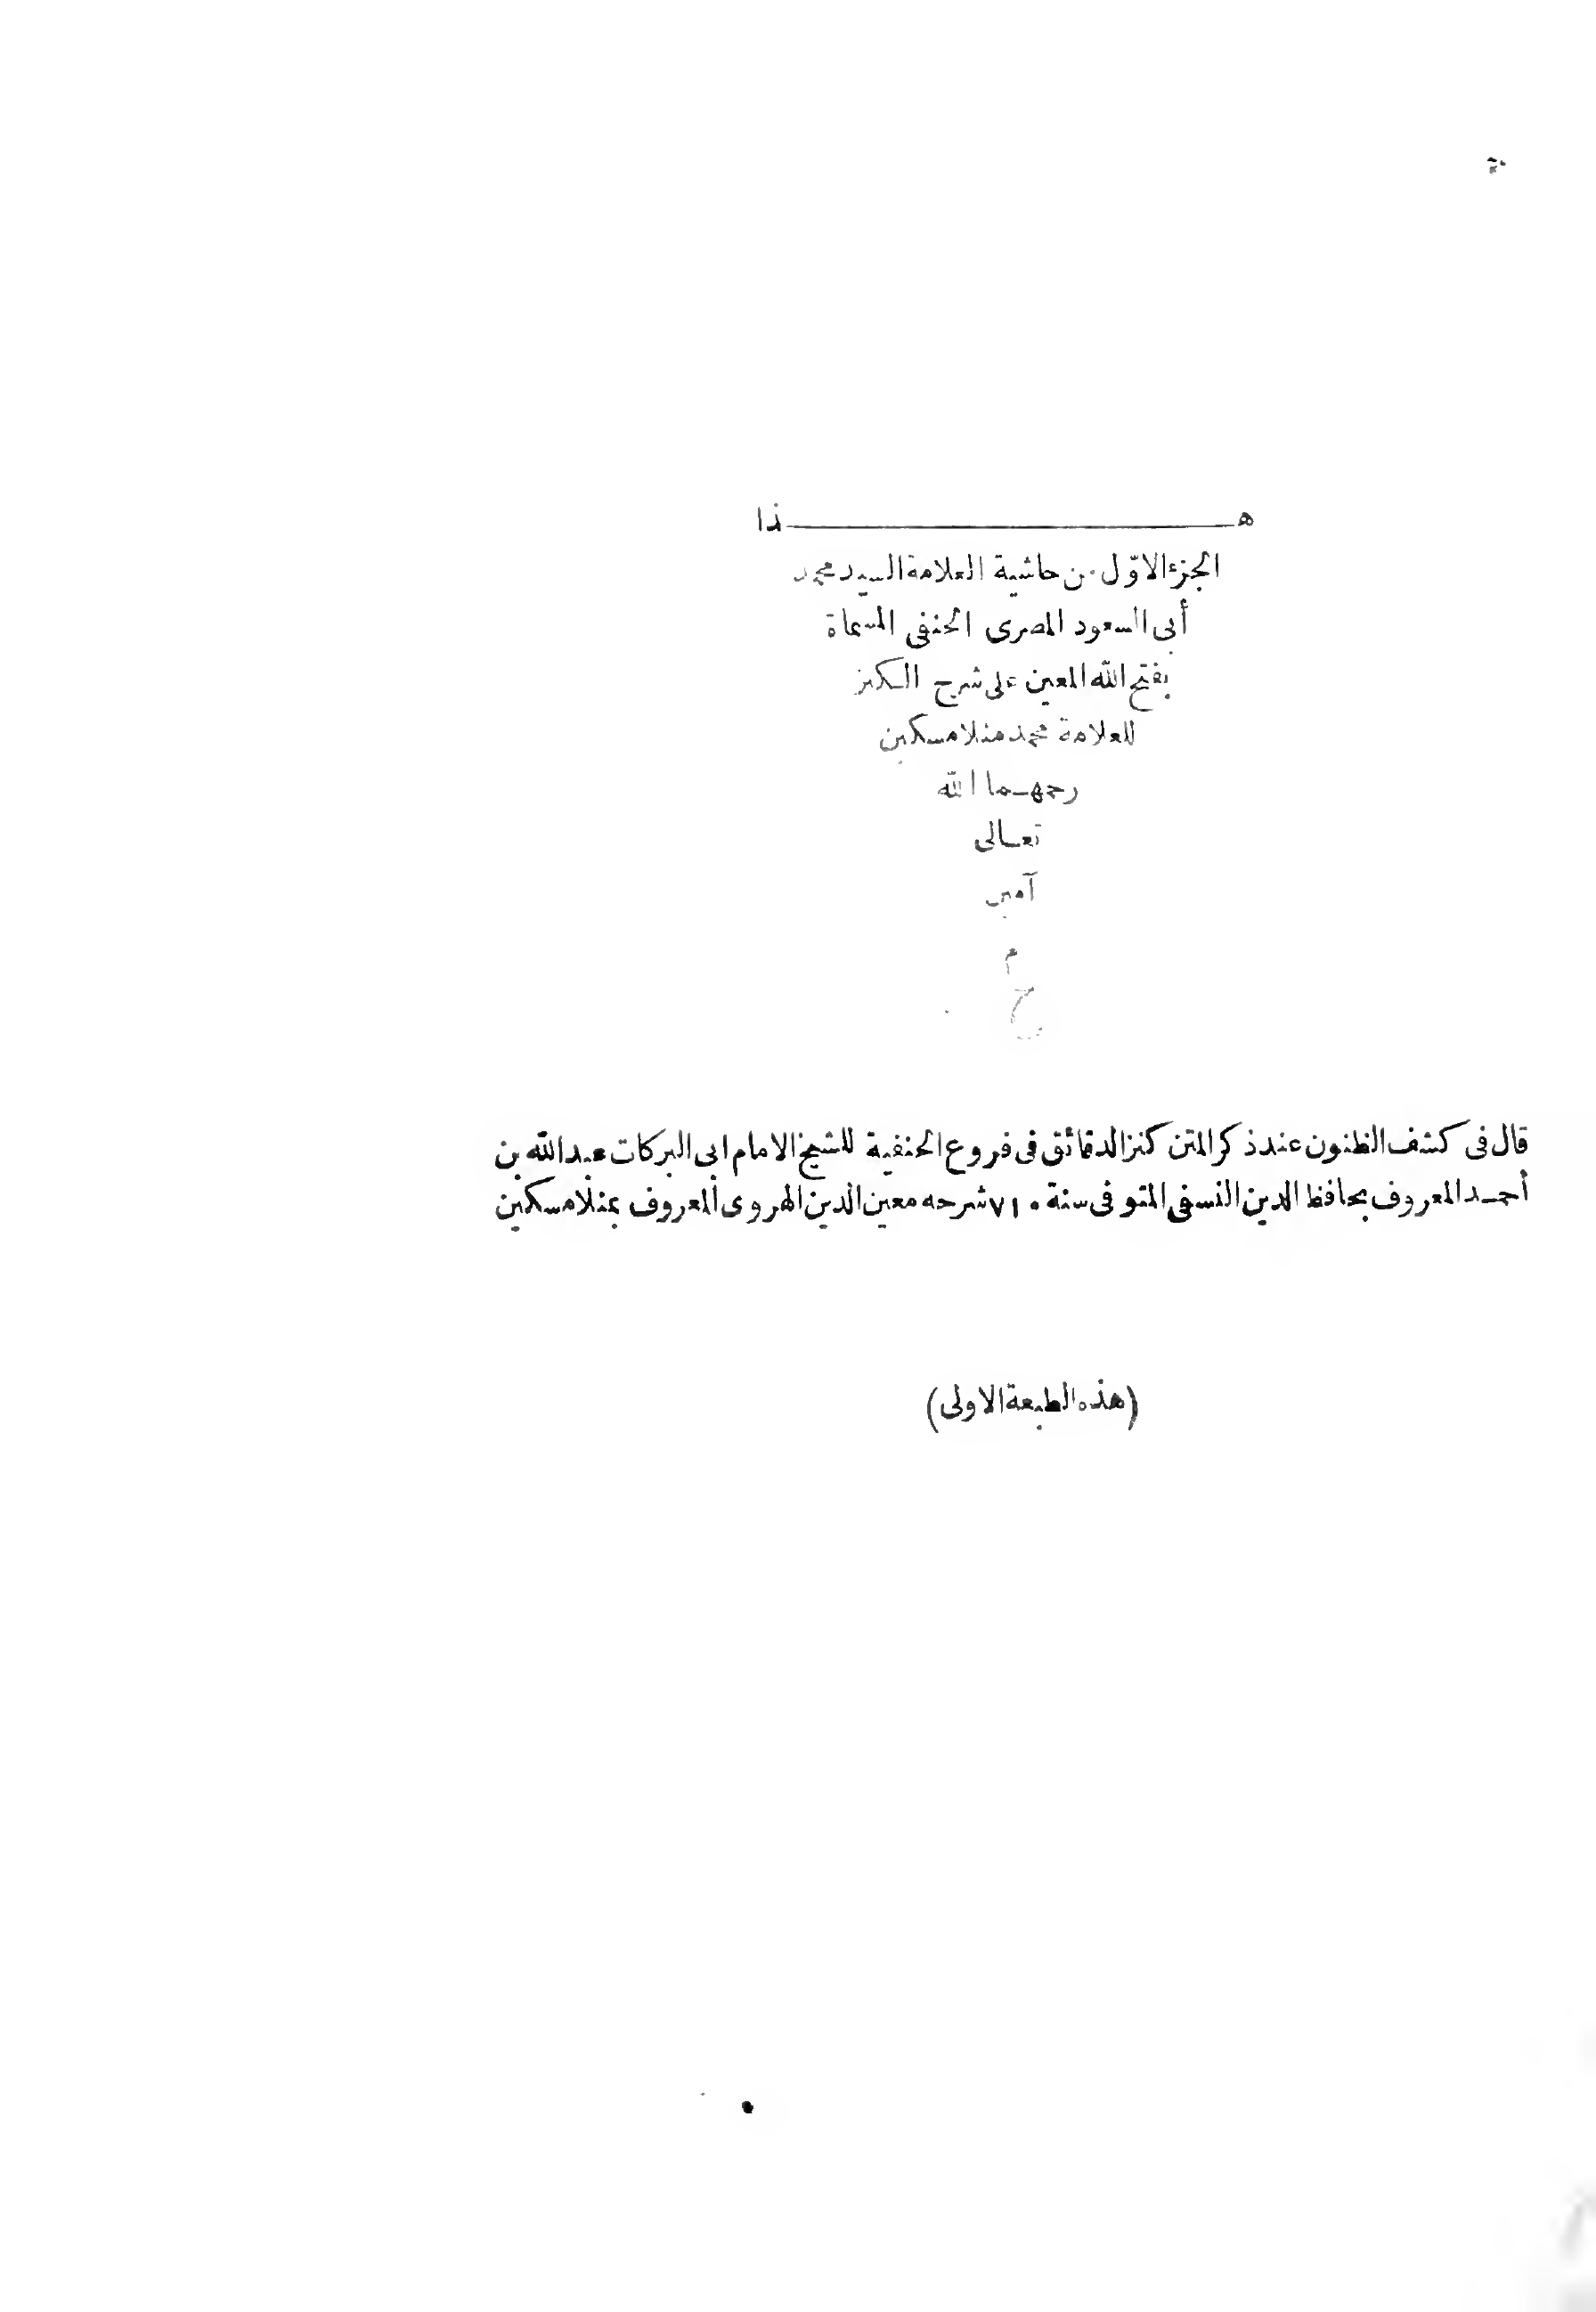 هـــــــــــــذا
الجزء الاوّل من حاشية العلامة السيد محمد
أبى السعود المصرى الحنفى المسماة
بفتح الله المعين على شرح الكنز
للعلامة محمد منلا مسكين
رحمهـما الله
تعـالى
آمين
م
قال فى كشف الظنون عند ذكر المتن كنز الدقائق فى فروع الحنفية للشيخ الامام ابى البركات عبد الله بن
أحمـد المعروف بحافظ الدين النسفى المتوفى سنة ٧١٠ شرحه معين الدين الهروى المعروف بمنلا مسكين
(هذه الطبعة الاولى)